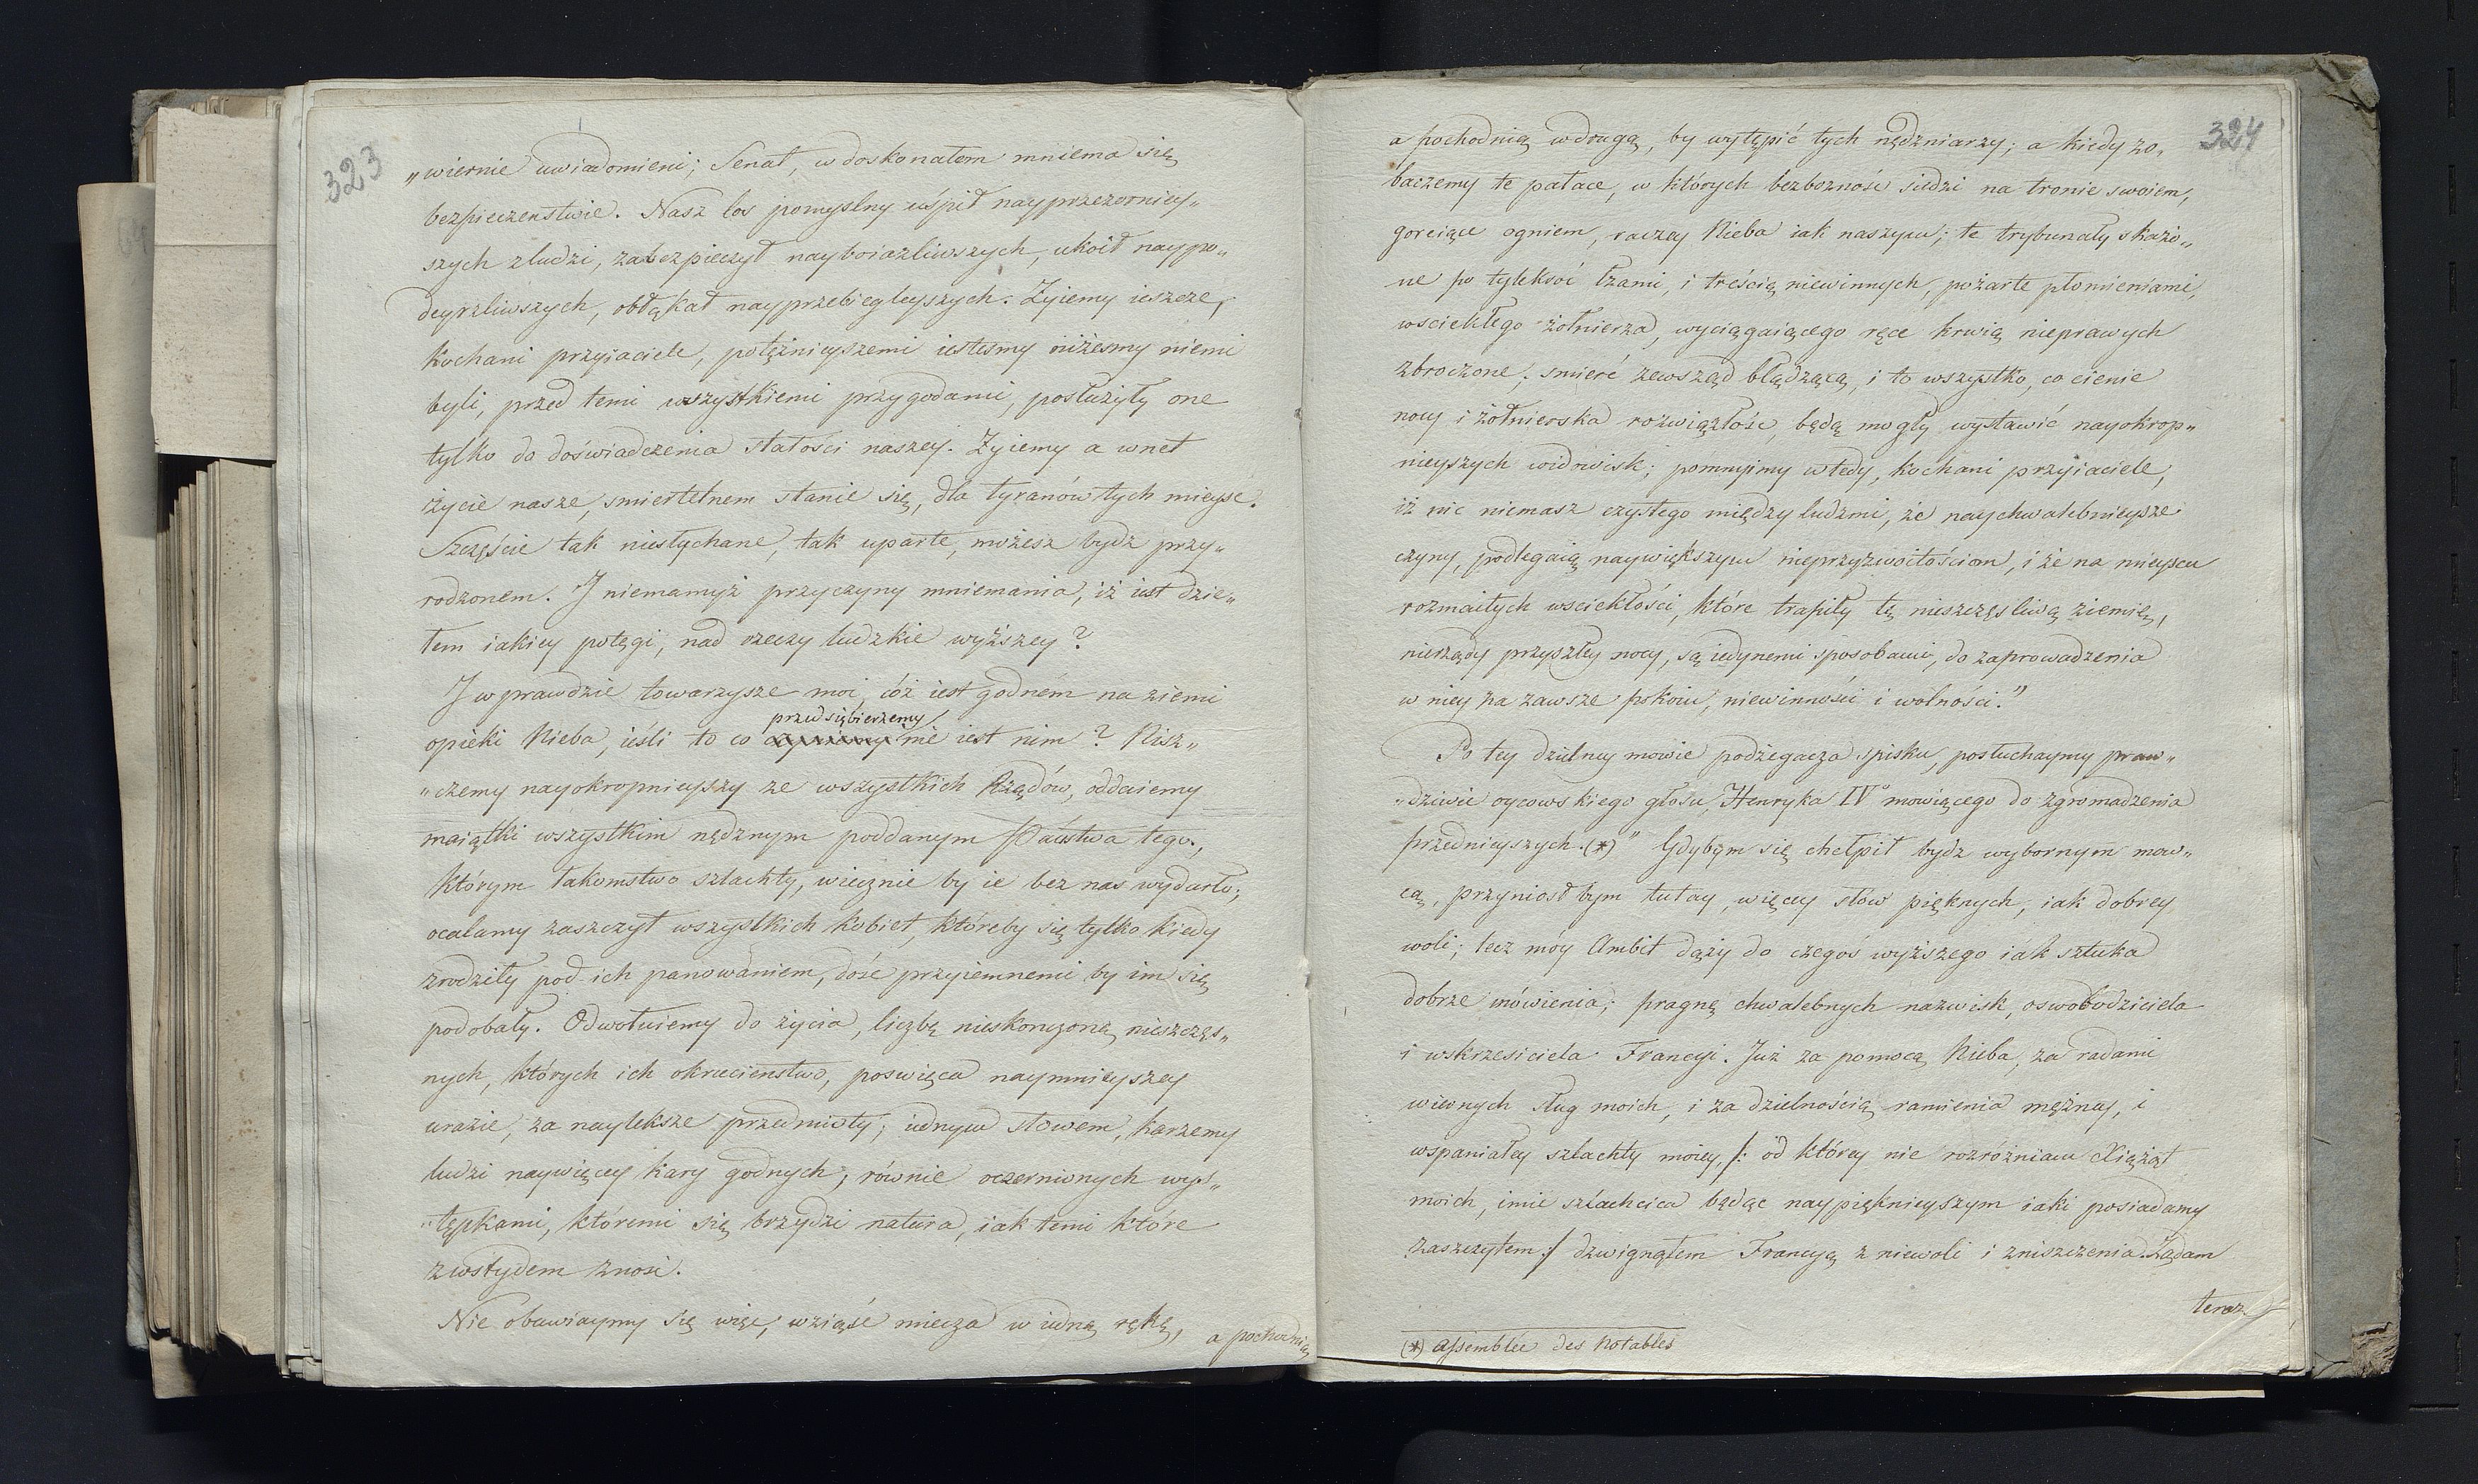 323
„wiernie uwiadomieni; Senat, w doskonałem mniema się
bezpieczenstwie. Nasz los pomyslny uśpił nayprzezorniey„
szych z ludzi, zabezpieczył nayboiaźliwszych, ukoił naypo„
deyrzliwszych, obłąkał nayprzebiegleyszych. Żyiemy ieszcze,
kochani przyiaciele, potężnieyszemi iestesmy niżesmy niemi
byli, przed temi wszystkiemi przygodami, posłużyły one
tylko do doświadczenia stałości naszey. Żyiemy a wnet
życie nasze, smiertelnem stanie się, dla tyranów tych mieysc.
Szczęście tak niesłychane, tak uparte, możesz bydz przy„
rodzonem. J niemamyż przyczyny mniemania, iż iest dzie„
łem iakiey potęgi, nad rzeczy ludzkie wyższey?
J w prawdzie towarzysze moi, cóż iest godném na ziemi
przedsiębierzemy
opieki Nieba, iésli to co czyniemy nie iest nim? Nisz„
„czemy nayokropnieyszy ze wszystkich Rządów, oddaiemy
maiątki wszystkim nędznym poddanym Państwa tego,
którym łakomstwo szlachty, wiecznie by ie bez nas wydarło;
ocalamy zaszczyt wszystkich kobiet, któreby się tylko kiedy
zrodziły pod ich panowaniem, dość przyiemnemi by im się
podobały. Odwołuiemy do życia, liczbę nieskonczoną nieszczęs„
nych, których ich okrucienstwo, poswięca naymnieyszey
urazie, za nayleksze przedmioty; iednym słowem, karzemy
ludzi naywięcey kary godnych; równie oczernionych wys„
„tępkami, któremi się brzydzi natura, iak temi które
z wstydem znosi.
Nie obawiaymy się więc, wziąść miecza w iedną rękę,
a pochodnią
324
a pochodnią w drugą, by wytępić tych nędzniarzy; a kiedy zo„
baczemy te pałace, w których bezbożność siedzi na tronie swoiem,
goreiące ogniem, raczey Nieba iak naszym; te trybunały skażo„
ne po tylekroć łzami, i treścią niewinnych, pożarte płomieniami,
wsciekłego żołnierza, wyciągaiącego ręce krwią nieprawych
zbroczone; smierć zewsząd błądzącą, i to wszystko, co cienie
nocy i żołnierska rozwiązłość, będą mogły wystawić nayokrop„
nieyszych widowisk; pomnyimy wtedy, kochani przyiaciele,
iż nic niemasz czystego między ludzmi, że naychwalebnieysze
czyny, podlegaią naywiększym nieprzyzwoitościom, i że na mieyscu
rozmaitych wsciekłości, które trapiły tę nieszczęsliwą ziemię,
nierządy przyszłey nocy, są iedynemi sposobami, do zaprowadzenia
w niey na zawsze pokoiu, niewinności i wolności."
Po tey dzielney mowie podżegacza spisku, posłuchaymy praw„
„dziwie oycowskiego głosu, Henryka IVo mowiącego do zgromadzenia
przednieyszych. (*) "Gdybym się chełpił bydz wybornym mow„
cą, przyniosł bym tutay, więcey słow pięknych, iak dobrey
woli; lecz móy Ambit dąży do czegoś wyższego iak sztuka
dobrze mówienia; pragnę chwalebnych nazwisk, oswobodziciela
i wskrzesiciela Francyi. Już za pomocą Nieba, za radami
wiernych sług moich, i za dzielnością ramienia mężney, i
wspaniałey szlachty moiey, /: od którey nie rozróżniam Xiążąt
moich, imie szlachcica będąc naypięknieyszym iaki posiadamy
zaszczytem :/ dzwignąłem Francyą z niewoli i zniszczenia. Żądam
teraz
(*) assemblee des notables